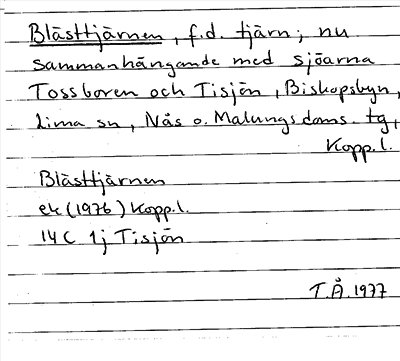 Blästtjärnen, f.d. tjärn, nu
sammanhängande med sjöarna
Tossboren och Tisjön, Biskopsbyn,
Lima sn, Nås o. Malungs doms. tg,
Kopp.l.
Blästtjärnen
ek (1976) Kopp.l.
14 C 1j Tisjön
T.Å. 1977